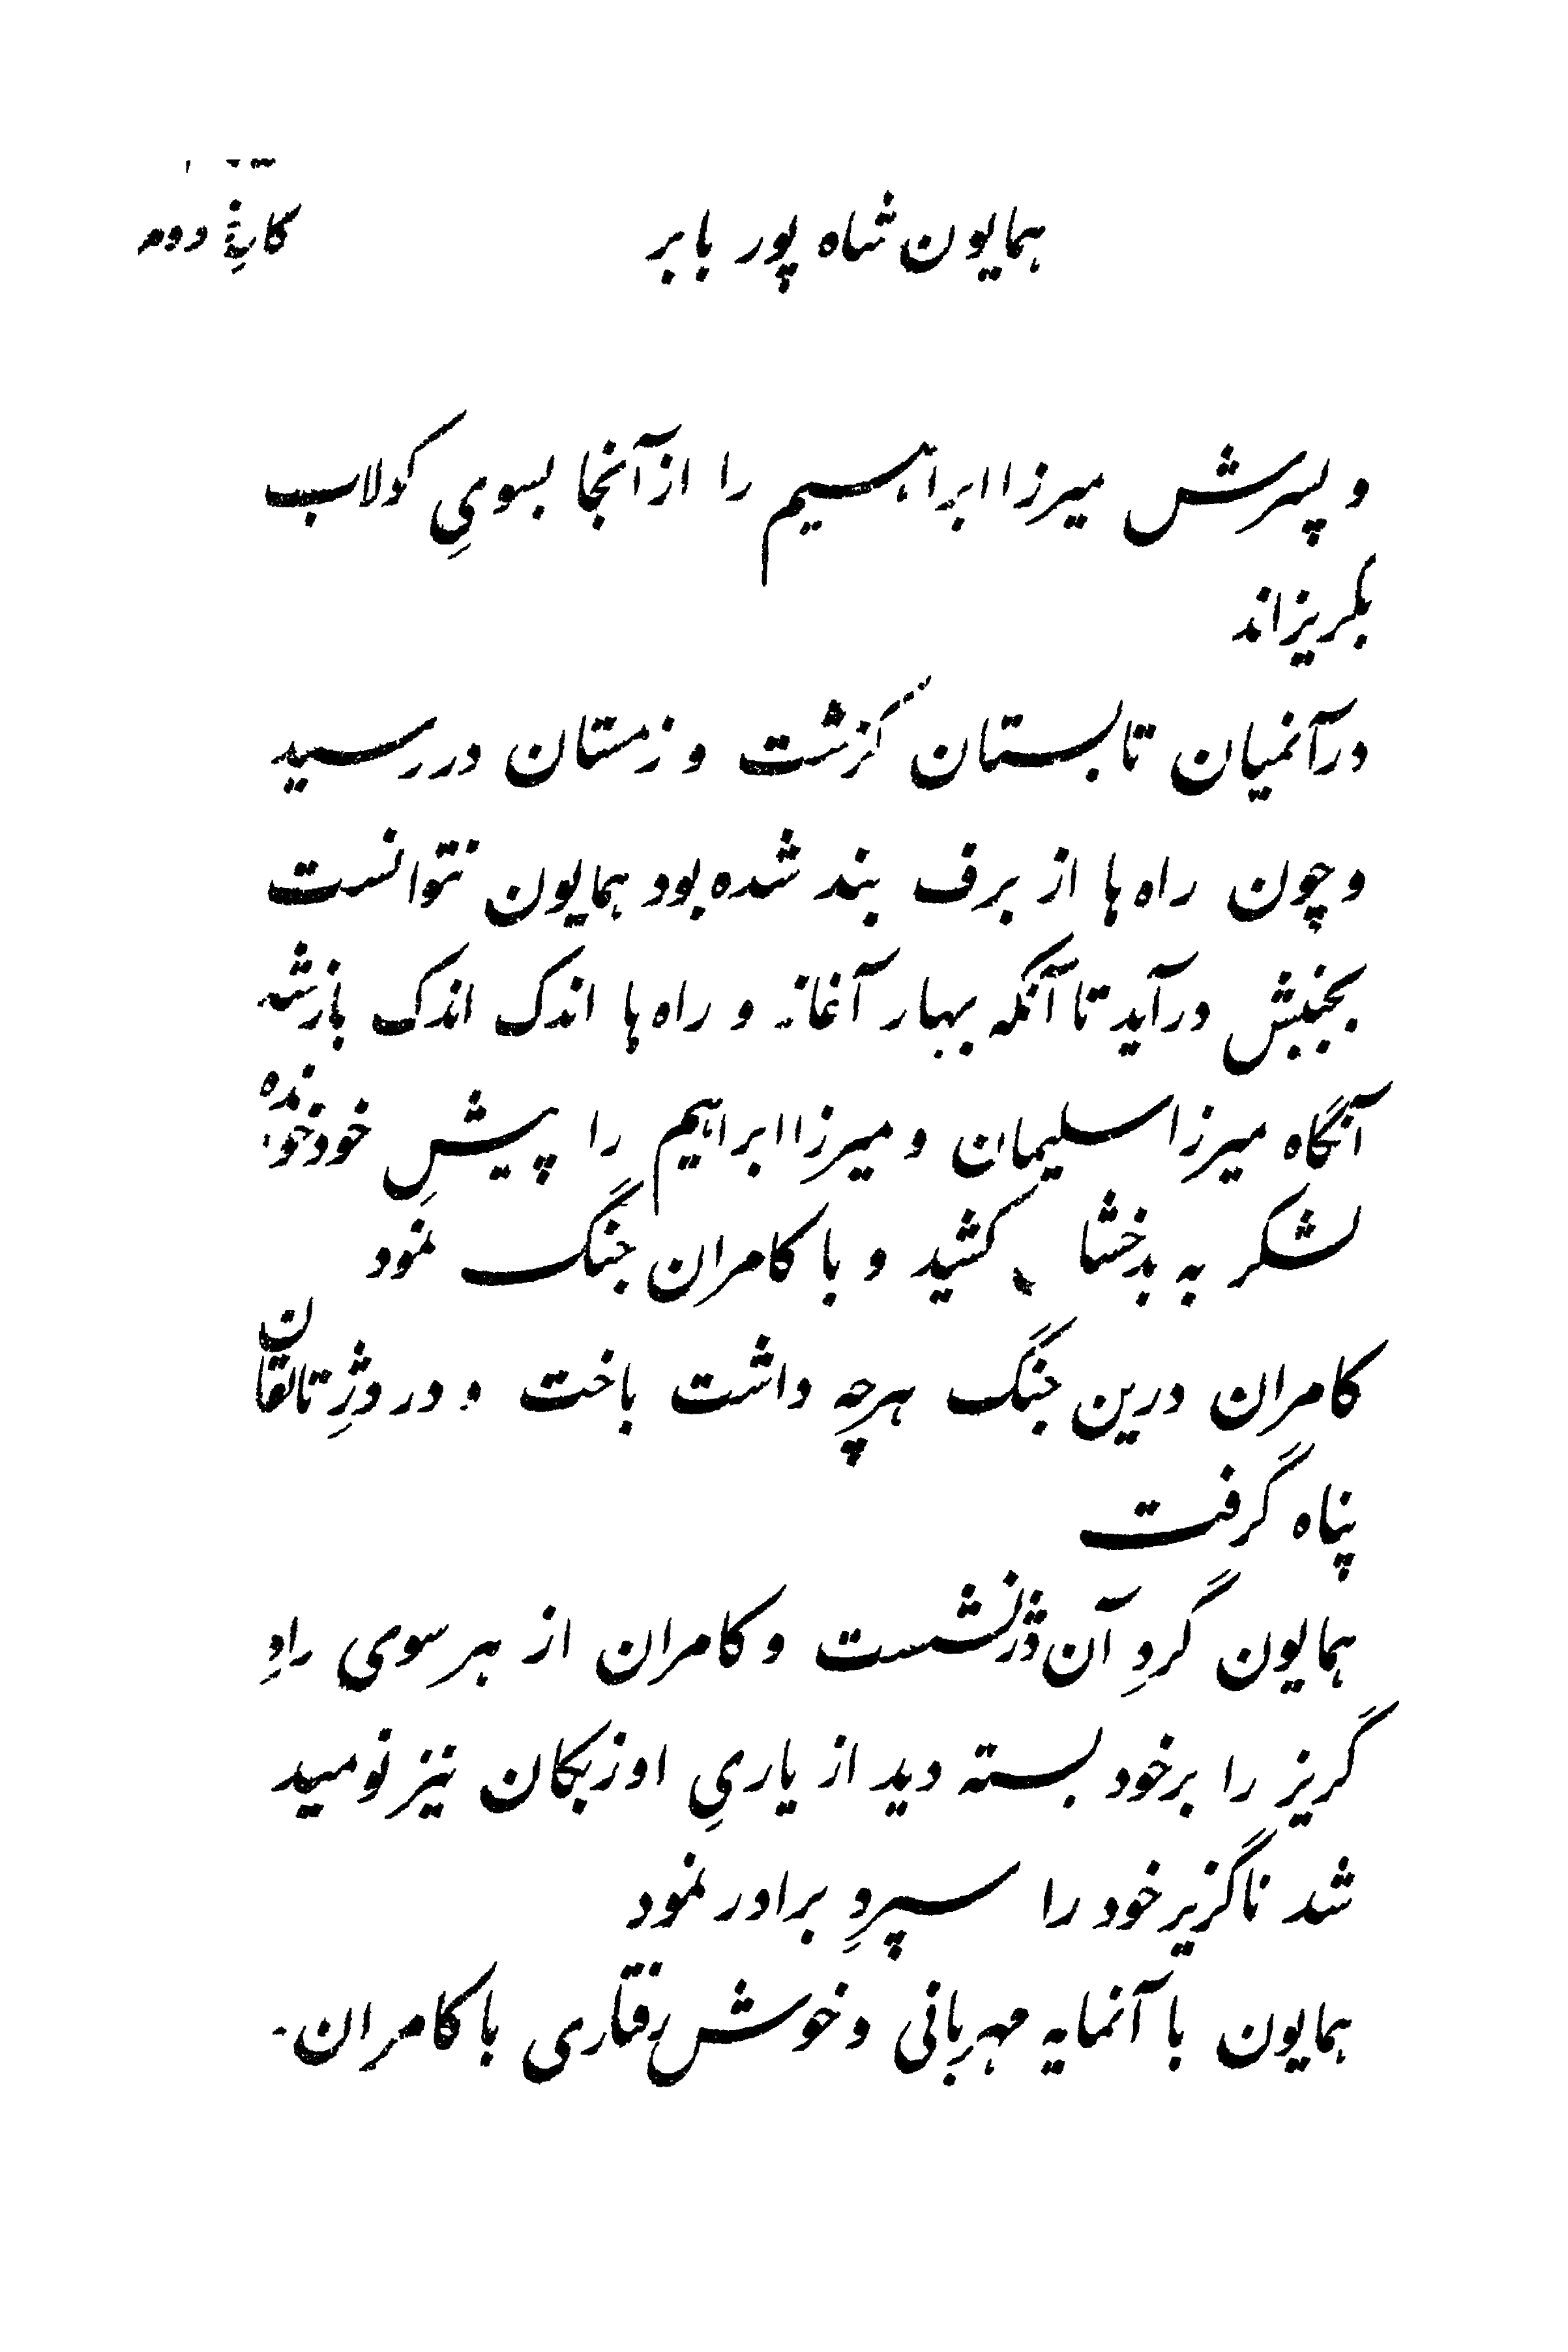 همایون شاه پور بابر
دوم
و پسرش میرزا ابراهیم را از آنجا بسویِ کولاب
بگریزاند
در آنمیان تابستان گزشت و زمستان در رسید
و چون راه ها از برف بند شده بود همایون نتوانست
بجنبش در آید تا آنکه بهار آغاز و راه ها اندک اندک باز شد
آنگاه میرزا سلیمان و میرزا ابراهیم را پیشِ خود خوانده
لشکر به بدخشان کشید و با کامران جنگ نمود
کامران درین جنگ هرچه داشت باخت و در دژِ تالقان
پناه گرفت
همایون گردِ آن دژ نشست و کامران از هر سوی راهِ
گریز را بر خود بسته دید از یاریِ اوزبکان نیز نومید
شد ناگزیر خود را سپردِ برادر نمود
همایون با آنمایه مهربانی و خوش رفتاری با کامران